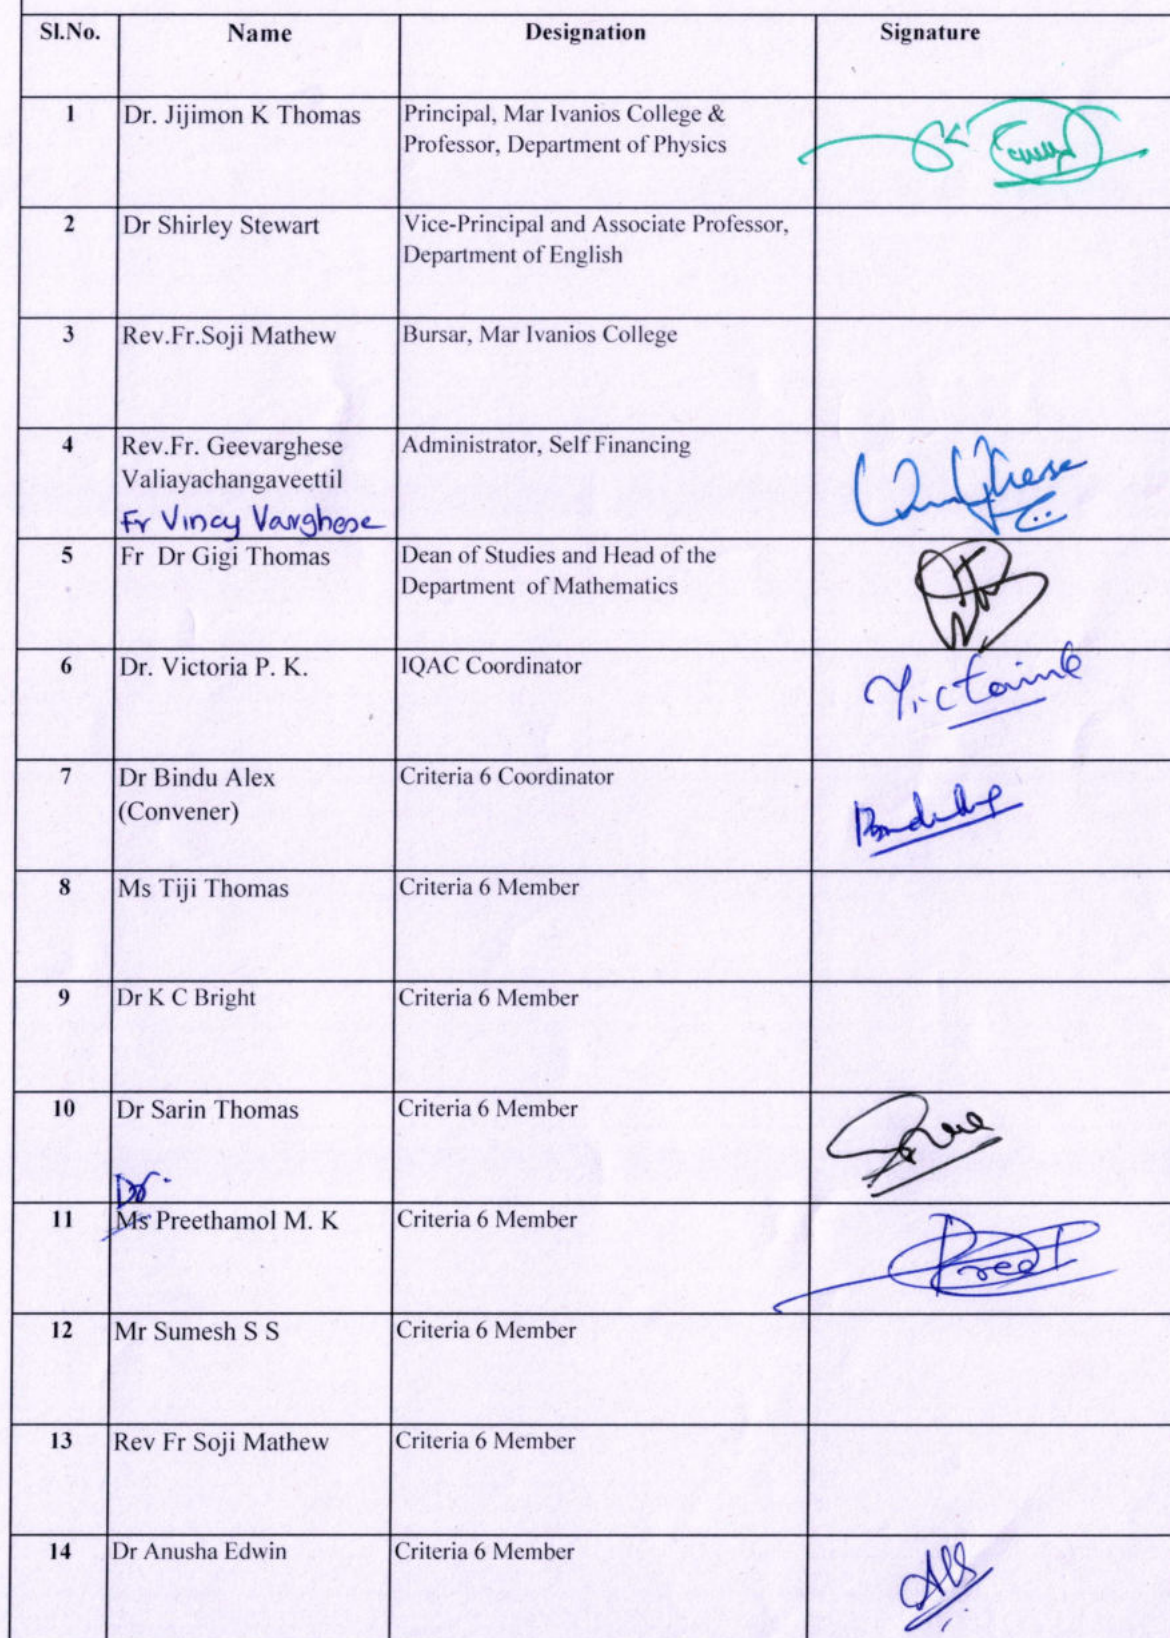 Sl.No. Name Designation Signature
1 Dr. Jijimon K Thomas Principal, Mar Ivanios College &
Professor, Department of Physics
2 Dr Shirley Stewart Vice-Principal and Associate Professor,
Department of English
3 Rev.Fr.Soji Mathew Bursar, Mar Ivanios College
4 Rev.Fr. Geevarghese Administrator, Self Financing
Valiayachangaveettil
Fr Vincy Varghese
5 Fr Dr Gigi Thomas Dean of Studies and Head of the
Department of Mathematics
6 Dr. Victoria P. K. IQAC Coordinator
7 Dr Bindu Alex Criteria 6 Coordinator
(Convener)
8 Ms Tiji Thomas Criteria 6 Member
9 Dr K C Bright Criteria 6 Member
10 Dr Sarin Thomas Criteria 6 Member
Dr.
11 Ms Preethamol M. K Criteria 6 Member
12 Mr Sumesh S S Criteria 6 Member
13 Rev Fr Soji Mathew Criteria 6 Member
14 Dr Anusha Edwin Criteria 6 Member